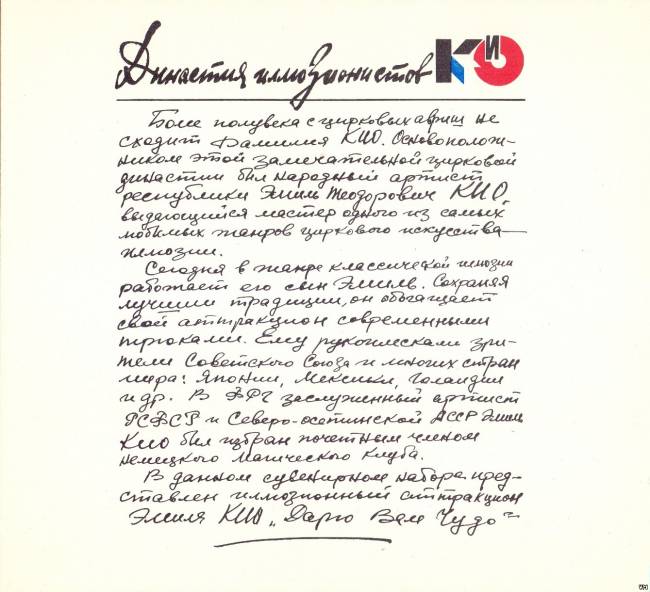 Династия иллюзионистов КИО
Более полувека с цирковых афиш не
сходит фамилия КИО. Основополож-
ником этой замечательной цирковой
династии был народный артист
республики Эмиль Теодорович КИО,
выдающийся мастер одного из самых
любимых жанров циркового искусства—
иллюзии.
Сегодня в жанре классической иллюзии
работает его сын Эмиль. Сохраняя
лучшие традиции, он обогащает
свой аттракцион современными
трюками. Ему рукоплескали зри-
тели Советского Союза и многих стран
мира: Японии, Мексики, Голандии
и др. В ФРГ заслуженный артист
РСФСР и Северо-осетинской АССР Эмиль
Кио был избран почетным членом
Немецкого Магического Клуба.
В данном сувенирном наборе пред-
ставлен иллюзионный аттракцион
Эмиля КИО „Дарю Вам Чудо"